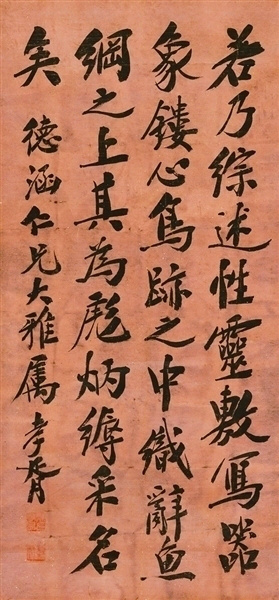 若乃綜述性靈敷寫器
象鏤心鳥跡之中織辭魚
網之上其為彪炳縟采名
矣 德涵仁兄大雅屬 孝胥